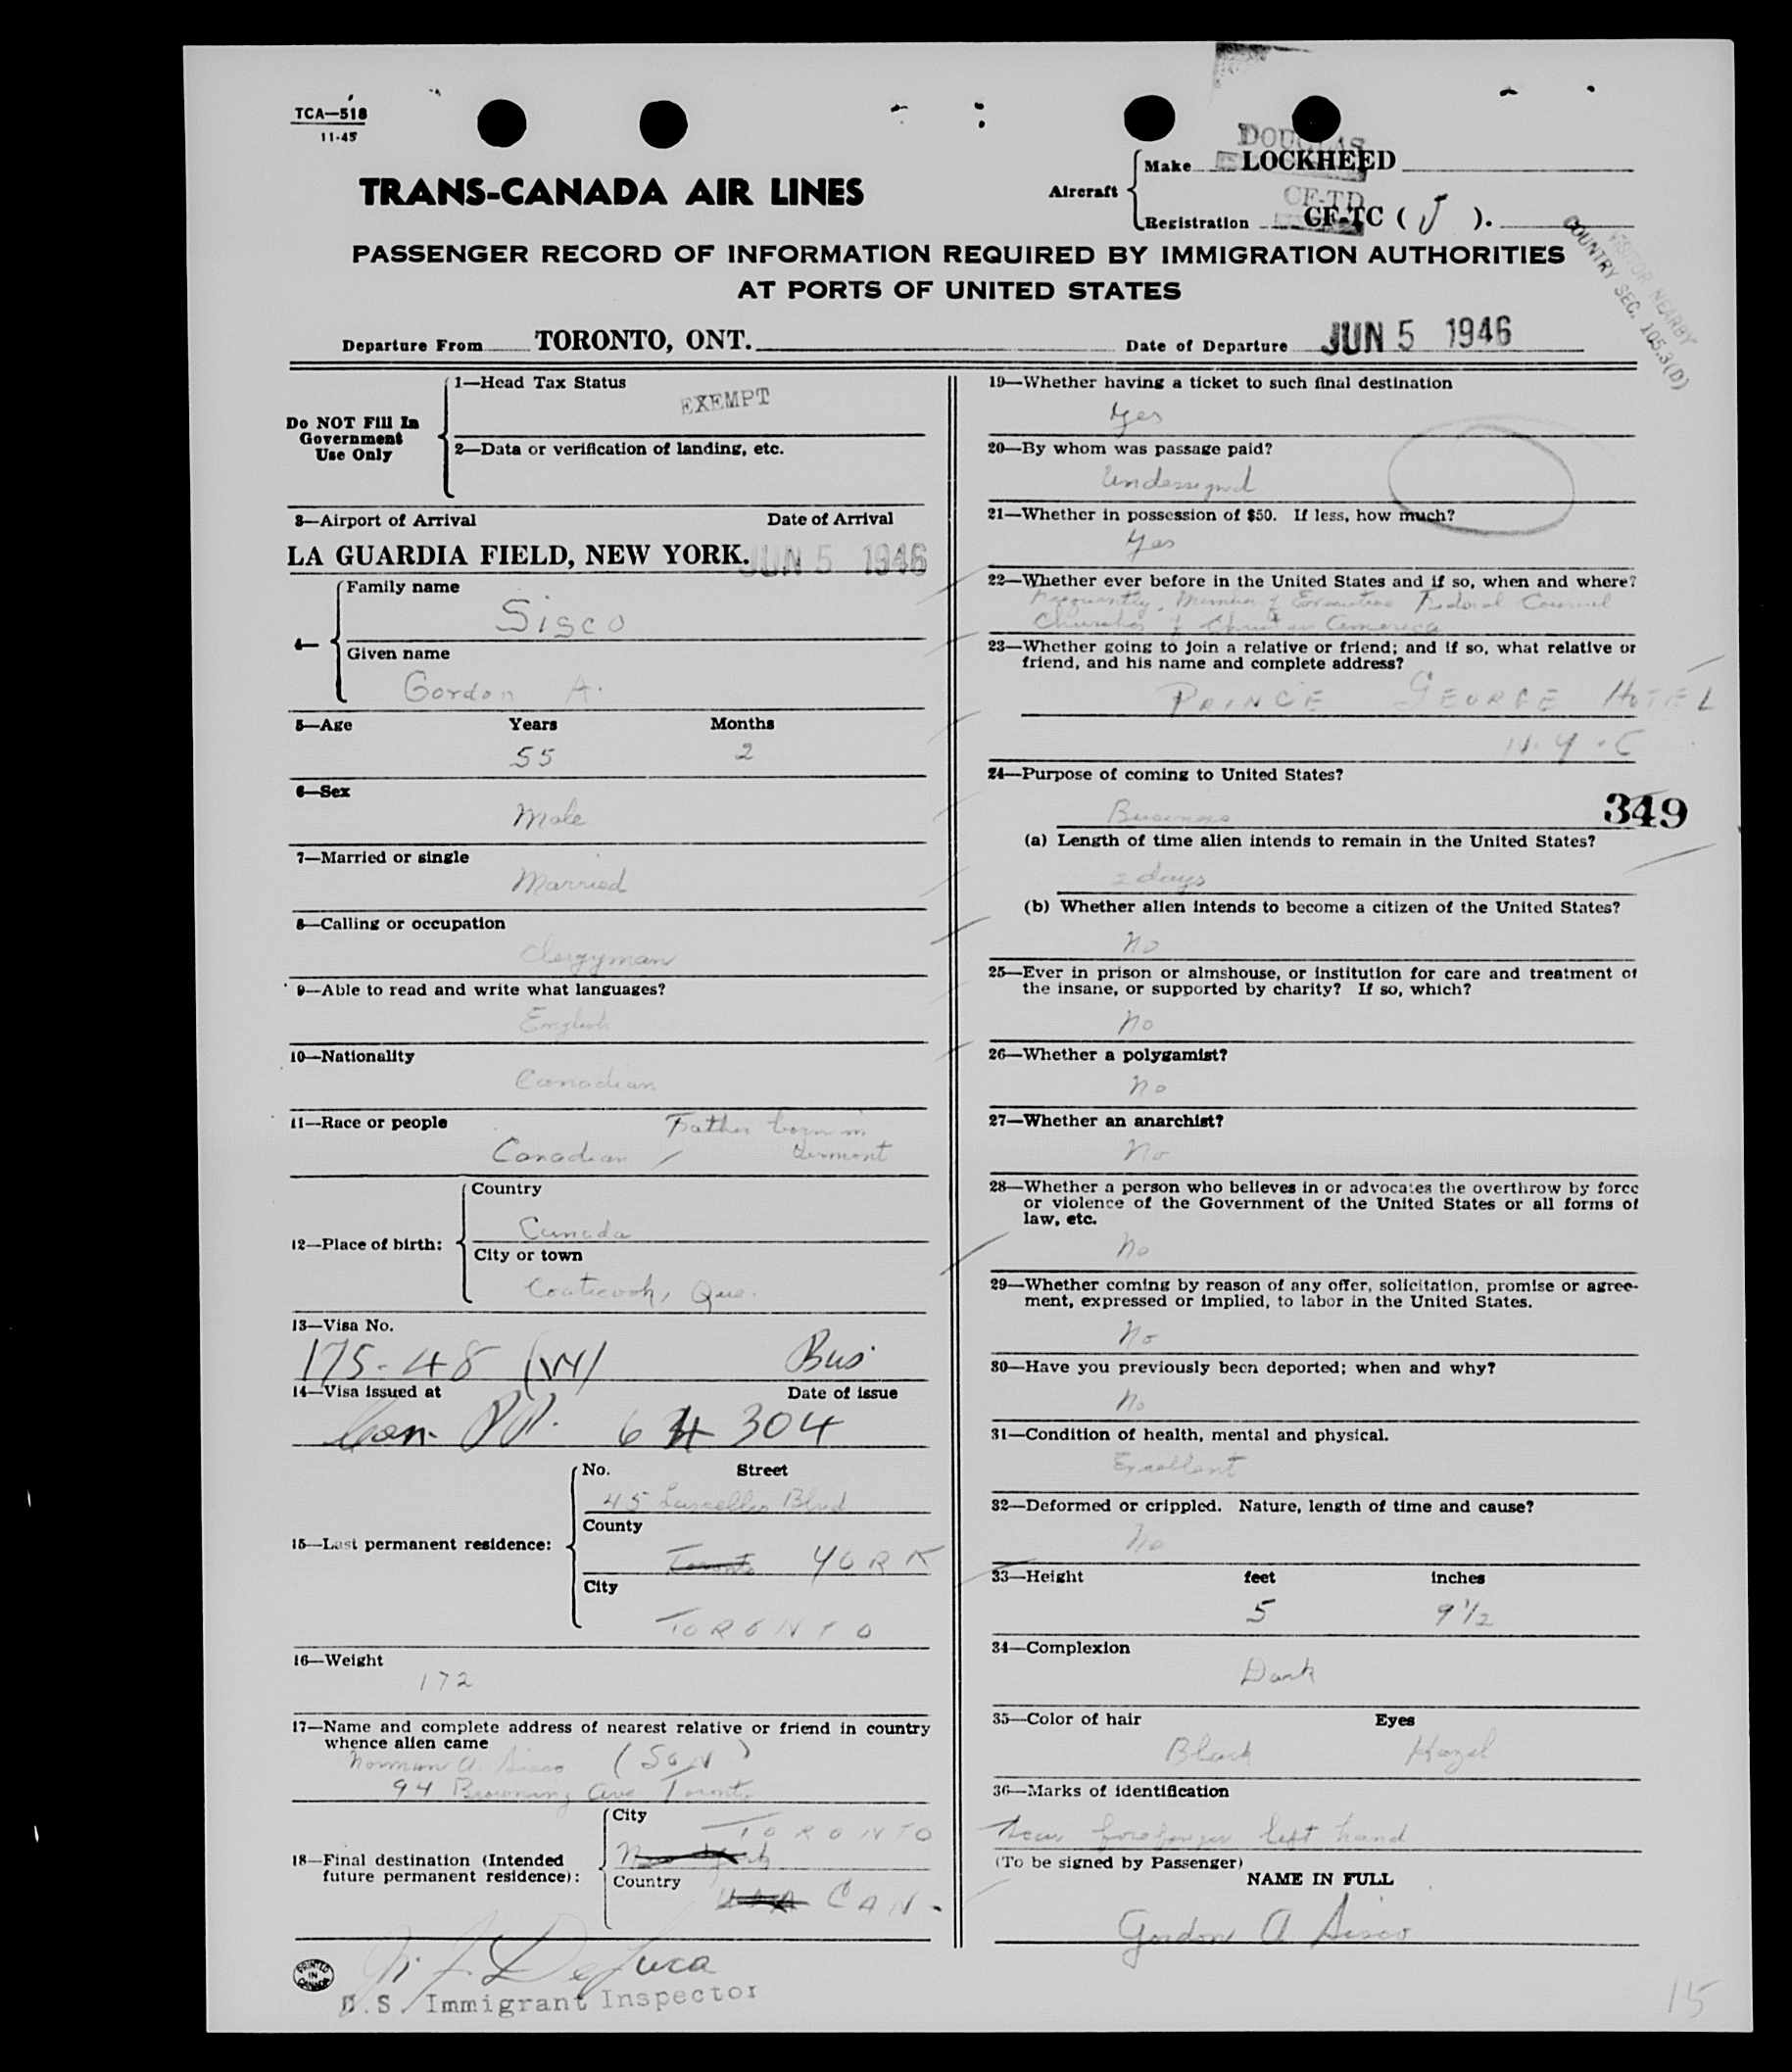 TCA—518
11-45
TRANS-CANADA AIR LINES
Aircraft
Make LOCKHEED
DOUGLAS
Registration CF-TC ( J ).
CF-TD
VISITOR NEARBY
COUNTRY SEC. 105.3(D)
PASSENGER RECORD OF INFORMATION REQUIRED BY IMMIGRATION AUTHORITIES
AT PORTS OF UNITED STATES
Departure From TORONTO, ONT.
Date of Departure JUN 5 1946
Do NOT Fill In
Government
Use Only
1—Head Tax Status
EXEMPT
2—Data or verification of landing, etc.
3—Airport of Arrival Date of Arrival
LA GUARDIA FIELD, NEW YORK. JUN 5 1946
4—
Family name
Sisco
Given name
Gordon A.
5—Age Years Months
55 2
6—Sex
Male
7—Married or single
Married
8—Calling or occupation
Clergyman
9—Able to read and write what languages?
English
10—Nationality
Canadian
11—Race or people
Father born in
Canadian / Vermont
12—Place of birth:
Country
Canada
City or town
Coaticook, Que.
13—Visa No.
175-48 (W) Bus
14—Visa issued at Date of issue
Can. PP. 64 304
15—Last permanent residence:
No. Street
45 Lascelles Blvd
County
Toronto YORK
City
TORONTO
16—Weight
172
17—Name and complete address of nearest relative or friend in country
whence alien came
Norman A. Sisco (SON)
94 Browning Ave Toronto
18—Final destination (Intended
future permanent residence):
City
TORONTO
Country
USA CAN.
PRINTED
IN
CANADA
DeLuca
U.S. Immigrant Inspector
19—Whether having a ticket to such final destination
Yes
20—By whom was passage paid?
Undersigned
21—Whether in possession of $50. If less, how much?
Yes
22—Whether ever before in the United States and if so, when and where?
Frequently, Member of Executive Federal Council
Churches of Christ in America
23—Whether going to join a relative or friend; and if so, what relative or
friend, and his name and complete address?
PRINCE GEORGE HOTEL
N.Y.C
24—Purpose of coming to United States?
Business
349
(a) Length of time alien intends to remain in the United States?
2 days
(b) Whether alien intends to become a citizen of the United States?
No
25—Ever in prison or almshouse, or institution for care and treatment of
the insane, or supported by charity? If so, which?
No
26—Whether a polygamist?
No
27—Whether an anarchist?
No
28—Whether a person who believes in or advocates the overthrow by force
or violence of the Government of the United States or all forms of
law, etc.
No
29—Whether coming by reason of any offer, solicitation, promise or agree-
ment, expressed or implied, to labor in the United States.
No
30—Have you previously been deported; when and why?
No
31—Condition of health, mental and physical.
Excellent
32—Deformed or crippled. Nature, length of time and cause?
No
33—Height feet inches
5 9 1/2
34—Complexion
Dark
35—Color of hair Eyes
Black Hazel
36—Marks of identification
Scar forefinger left hand
(To be signed by Passenger)
NAME IN FULL
Gordon A. Sisco
15